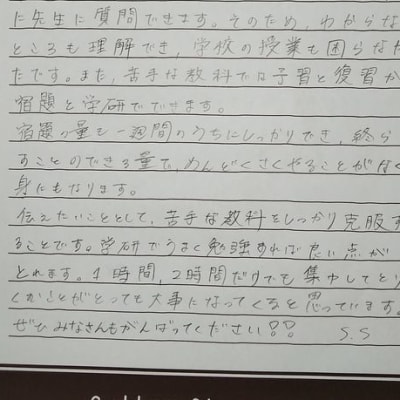 に先生に質問できます。そのため、わからな
ところも理解でき、学校の授業も困らなか
たです。また、苦手な教科では予習と復習が
宿題と学研でできます。
宿題の量も一週間のうちにしっかりでき、終ら
すことのできる量で、めんどくさくやることがなく
身にもなります。
伝えたいこととして、苦手な教科をしっかり克服す
ることです。学研でうまく勉強すれば良い点が
とれます。1時間、2時間だけでも集中してとり
くむことがとっても大事になってくると思っています。
ぜひみなさんもがんばってください!! S.S